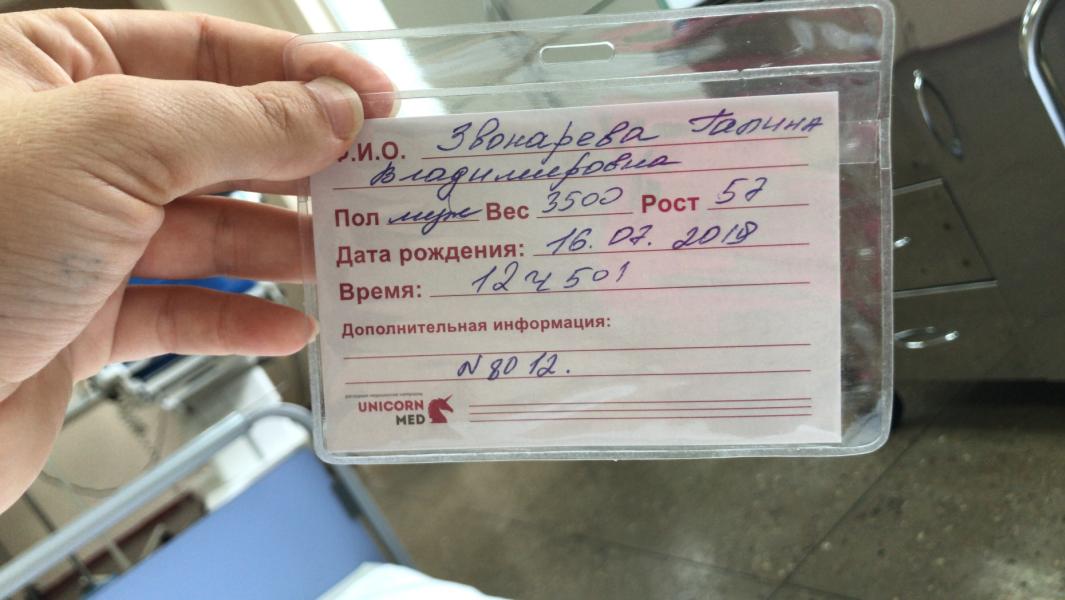 Ф.И.О. Звонарева Галина
Владимировна
Пол муж Вес 3500 Рост 57
Дата рождения: 16.07.2018
Время: 12ч 501
Дополнительная информация:
N 8012.
UNICORN
MED